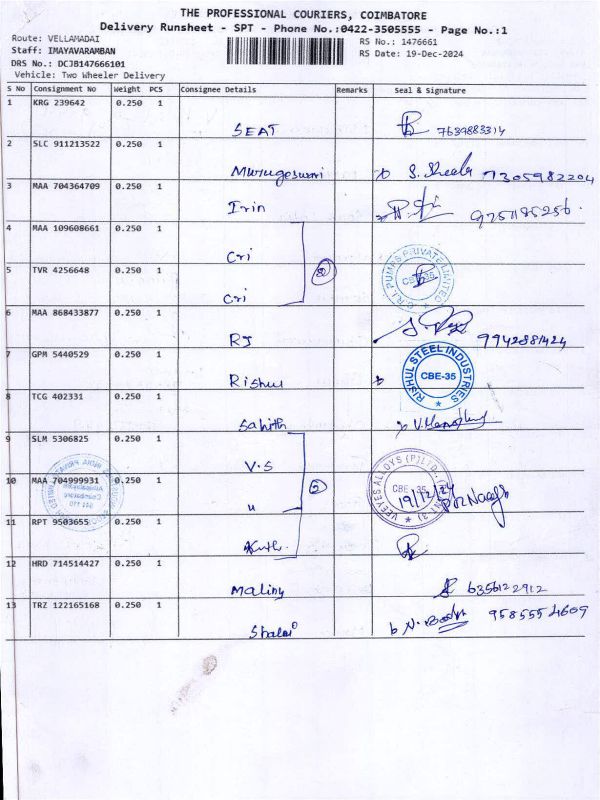 THE PROFESSIONAL COURIERS, COIMBATORE
Delivery Runsheet - SPT - Phone No.:0422-3505555 - Page No.:1
Route: VELLAMADAI
RS No.: 1476661
Staff: IMAYAVARAMBAN
RS Date: 19-Dec-2024
DRS No.: DCJB147666101
Vehicle: Two Wheeler Delivery
S No Consignment No Weight PCS Consignee Details Remarks Seal & Signature
1 KRG 239642 0.250 1
SEAT 7639883314
2 SLC 911213522 0.250 1
Murugeswari S. Sheela 7305982204
3 MAA 704364709 0.250 1
Irin 9751185256
4 MAA 109608661 0.250 1
Cri
C.R.I. PUMPS PRIVATE LIMITED
CBE-35
5 TVR 4256648 0.250 1
Cri
6 MAA 868433877 0.250 1
RJ 9942881424
7 GPM 5440529 0.250 1
Rishul
RISHUL STEEL INDUSTRIES
CBE-35
8 TCG 402331 0.250 1
Sahith
9 SLM 5306825 0.250 1
V.S
VEEYES ALLOYS (P) LTD.
CBE-35
10 MAA 704999931 0.250 1
19/12/24
11 RPT 9503655 0.250 1
12 HRD 714514427 0.250 1
Maliny 6356122912
13 TRZ 122165168 0.250 1
Shalai 9585554609